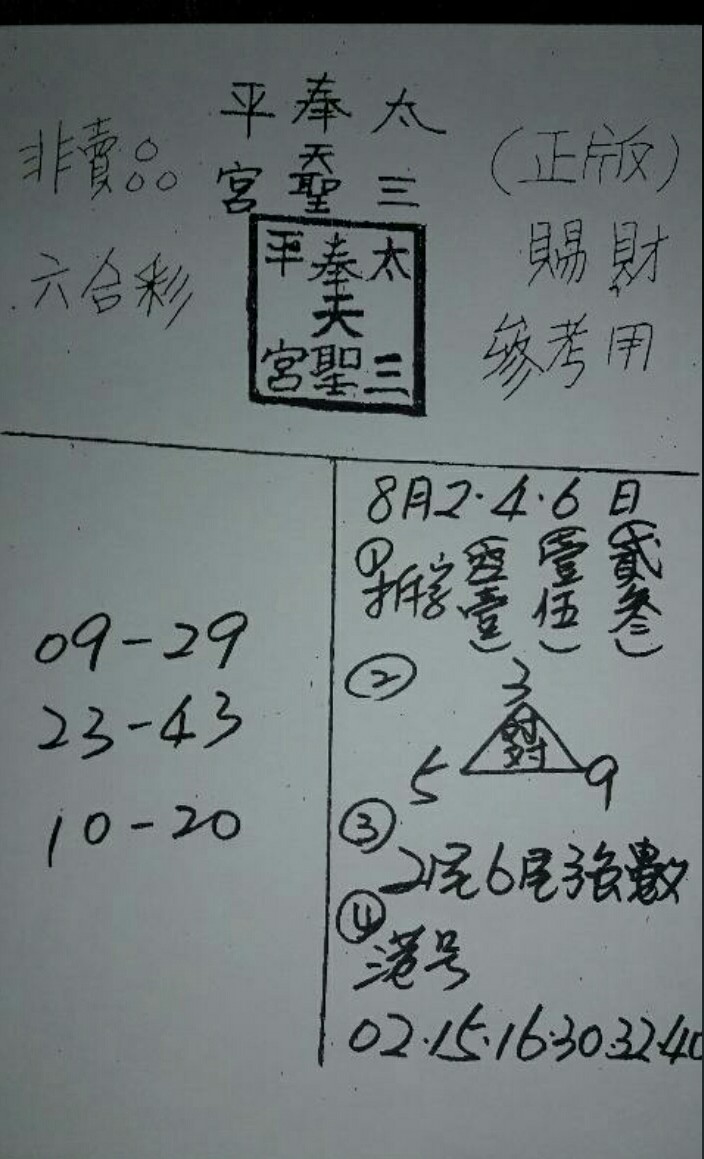 太三 奉天聖 平宮
非賣品
六合彩
太三 奉天聖 平宮
(正版)
賜財
參考用
09-29
23-43
10-20
8月2.4.6日
① 拆字 (零壹) (壹伍) (貳參)
②
3
對對
5 9
③
2尾6尾強數
④
港号
02.15.16.30.32.40